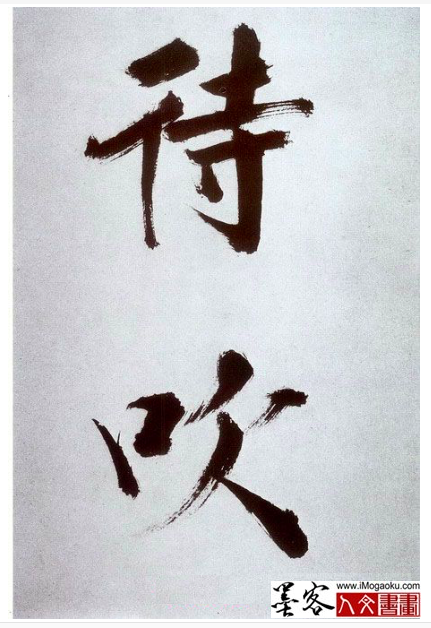 待
吹
墨客
www.iMogaoku.com
人文書畫